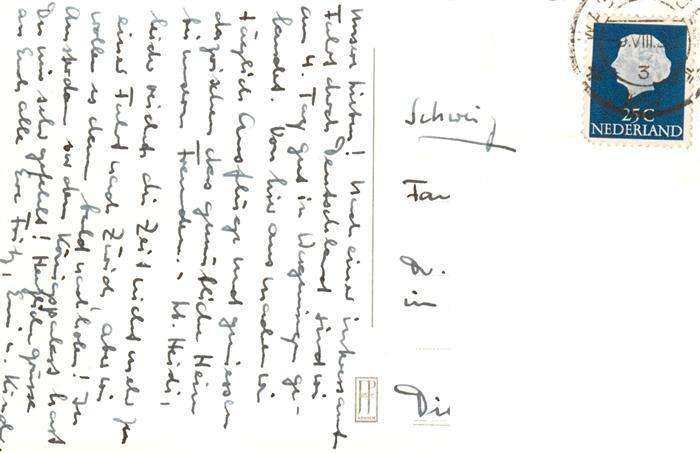 Unsere Lieben! Nach einer interessanten
Fahrt durch Deutschland sind wir
am 4. Tag gut in Wageningen ge-
landet. Von hier aus machen wir
täglich Ausflüge und geniessen
dazwischen das gemütliche Heim
bei unsern Freunden. – Lb. Heidi,
leider reichte die Zeit nicht mehr zu
einer Fahrt nach Zürich, aber wir
wollen es dann bald nachholen! In
Amsterdam vor dem Königspalast hast
Du uns sehr gefehlt! Herzliche Grüsse
an Euch alle Eure Fritz, u. Kinder.
Schweiz
Fam
in
Die
JP
VIII
3
25C
NEDERLAND